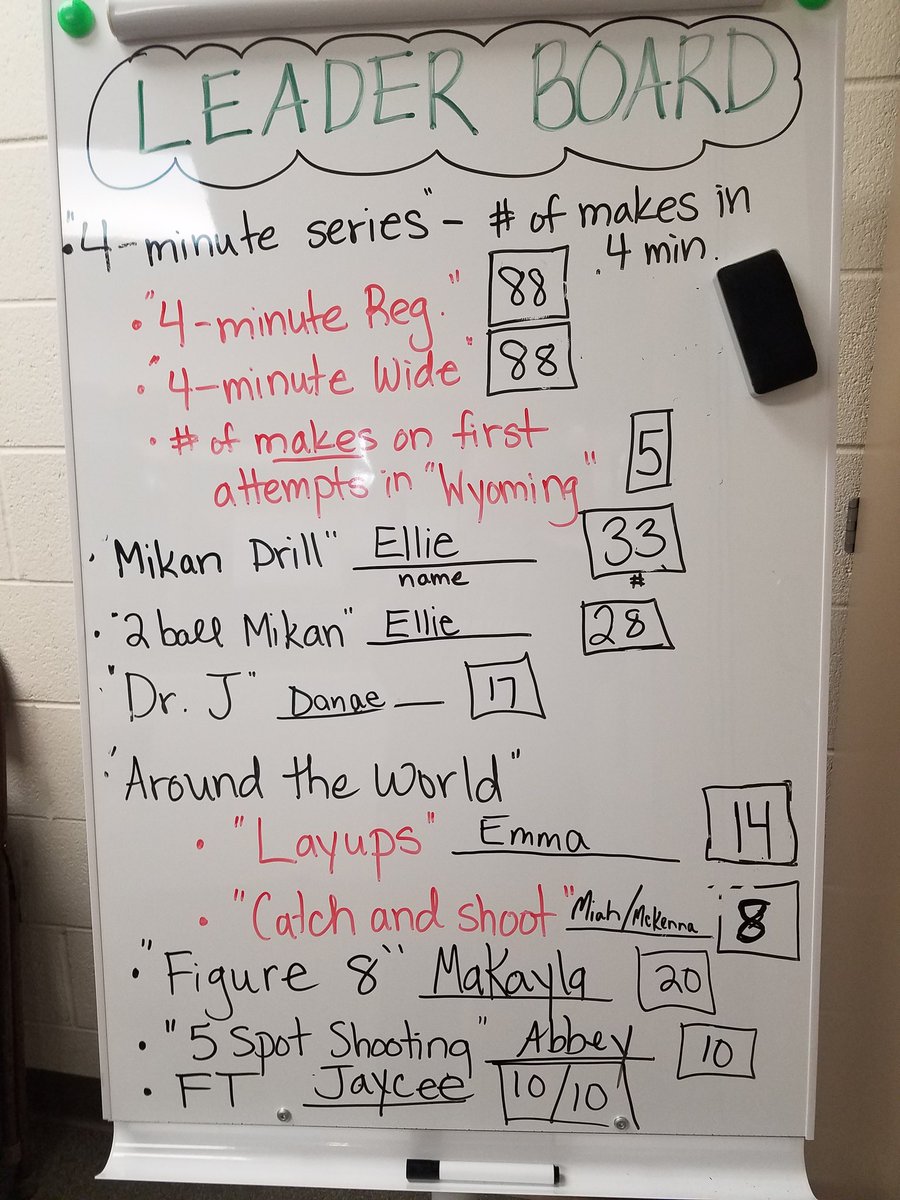 LEADER BOARD
• "4-minute series" - # of makes in
4 min.
• "4-minute Reg." 88
• "4-minute Wide" 88
• # of makes on first
attempts in "Wyoming" 5
• "Mikan Drill" Ellie 33
name #
• "2 ball Mikan" Ellie 28
• "Dr. J" Danae 17
• "Around the World"
• "Layups" Emma 14
• "Catch and shoot" Miah/McKenna 8
• "Figure 8" Makayla 20
• "5 Spot Shooting" Abbey 10
• FT Jaycee 10/10